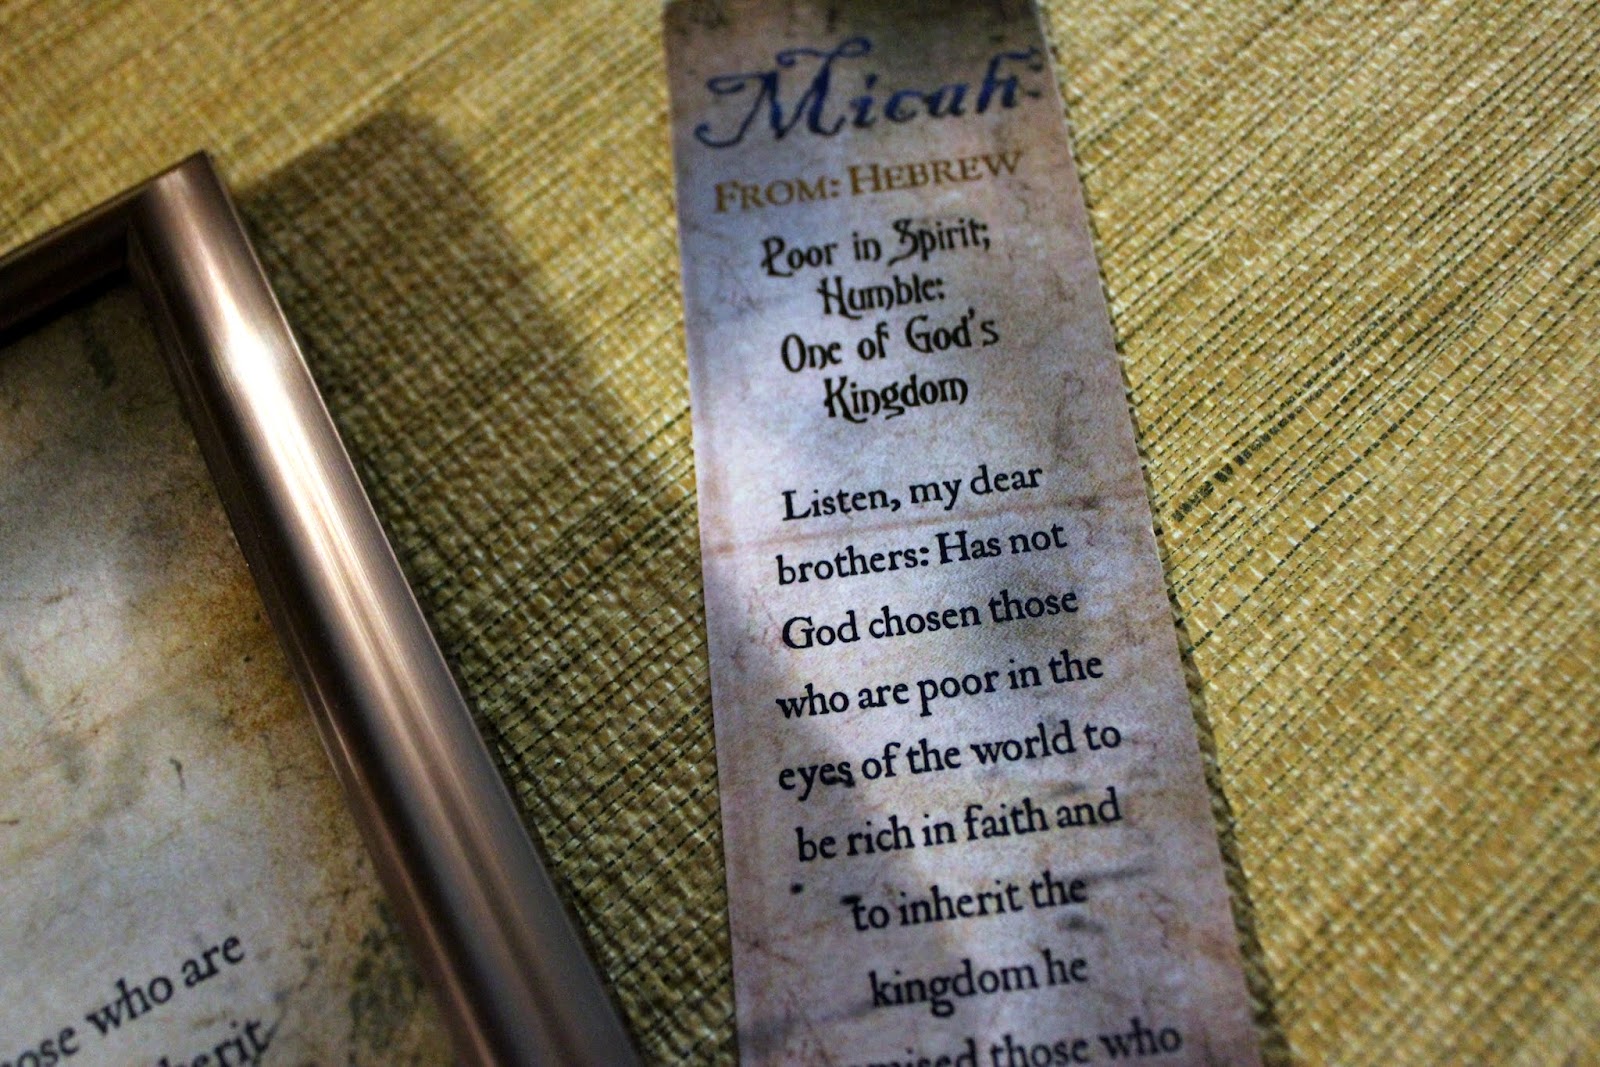 Micah
FROM: HEBREW
Poor in Spirit;
Humble:
One of God's
Kingdom
Listen, my dear
brothers: Has not
God chosen those
who are poor in the
eyes of the world to
be rich in faith and
to inherit the
kingdom he
those who
who are